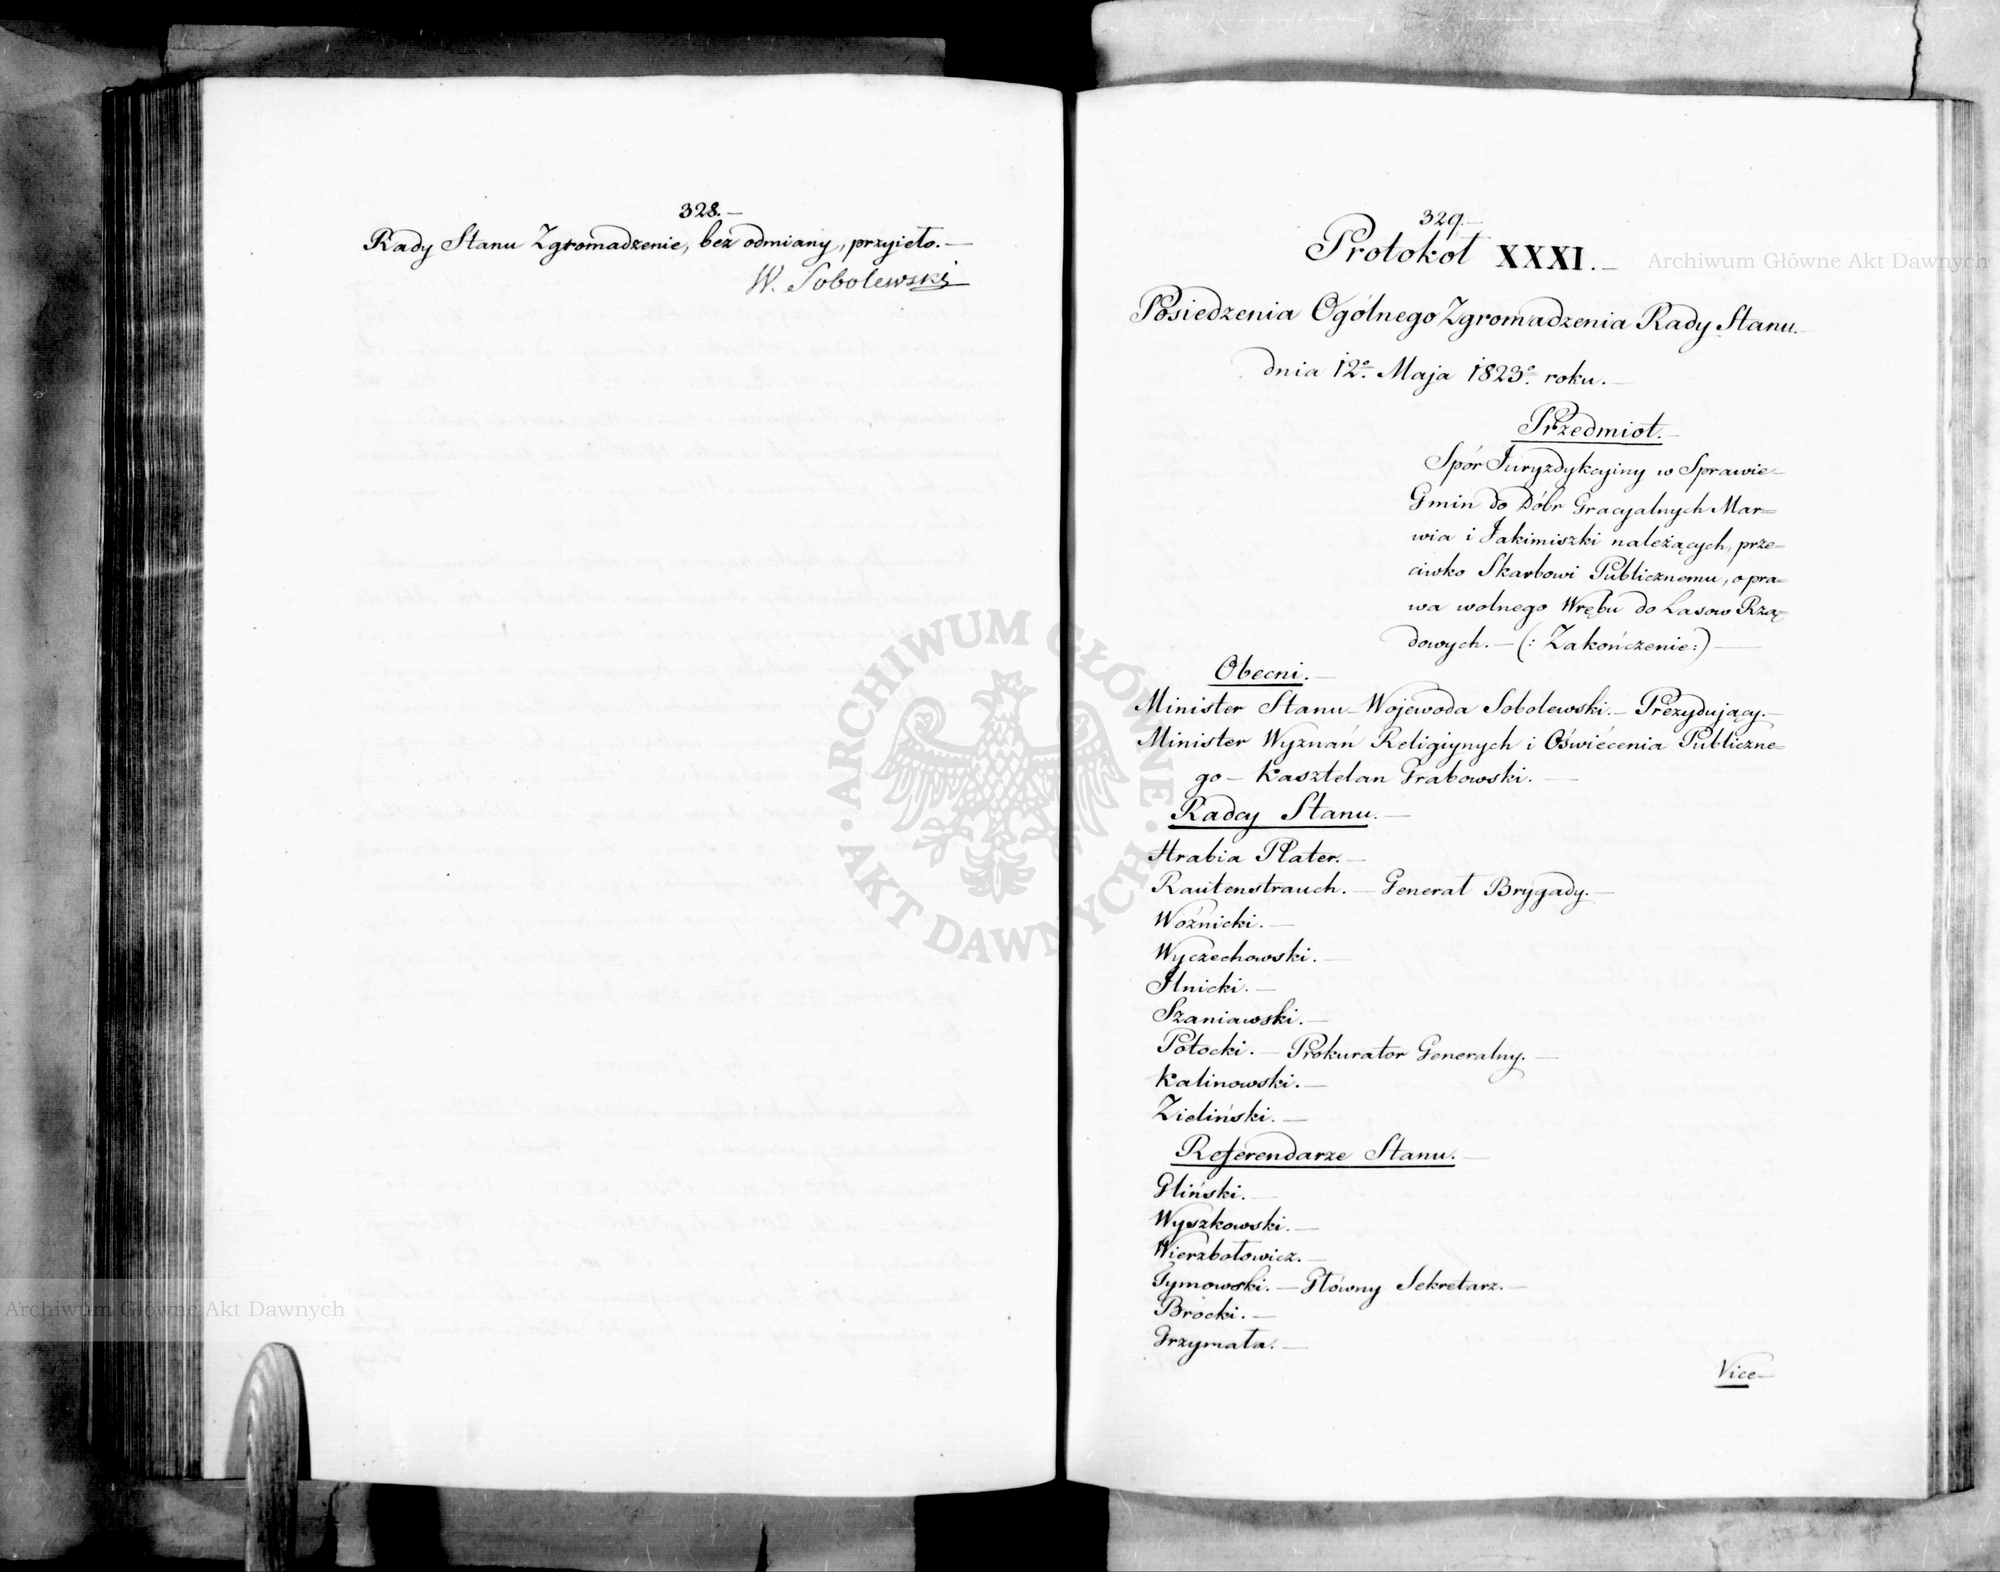 328.—
Rady Stanu Zgromadzenie, bez odmiany, przyięło.—
W. Sobolewski
329.—
Protokół XXXI.—
Posiedzenia Ogólnego Zgromadzenia Rady Stanu.—
dnia 12º Maja 1823º roku.—
Przedmiot.—
Spór Juryzdykcyiny w Sprawie
Gmin do Dóbr Gracyalnych Mar=
wia i Jakimiszki należących, prze=
ciwko Skarbowi Publicznemu, o pra=
wa wolnego Wrębu do Lasow Rzą=
dowych.— (: Zakończenie:)—
Obecni.—
Minister Stanu— Wojewoda Sobolewski.— Prezydujący.—
Minister Wyznań Religiynych i Oświécenia Publiczne=
go— Kasztelan Grabowski.—
Radcy Stanu.—
Hrabia Plater.—
Rautenstrauch.— Generał Brygady.—
Woźnicki.—
Wyczechowski.—
Ilnicki.—
Szaniawski.—
Potocki.— Prokurator Generalny.—
Kalinowski.—
Zieliński.—
Referendarze Stanu.—
Gliński.—
Wyszkowski.—
Wierzbołowicz.—
Tymowski.— Główny Sekretarz.—
Brocki.—
Grzymała.—
Vice—
Archiwum Główne Akt Dawnych
ARCHIWUM GŁÓWNE
· AKT DAWNYCH ·
Archiwum Główne Akt Dawnych